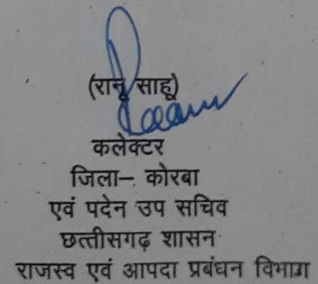 (रानू साहू)
कलेक्टर
जिला– कोरबा
एवं पदेन उप सचिव
छत्तीसगढ़ शासन
राजस्व एवं आपदा प्रबंधन विभाग